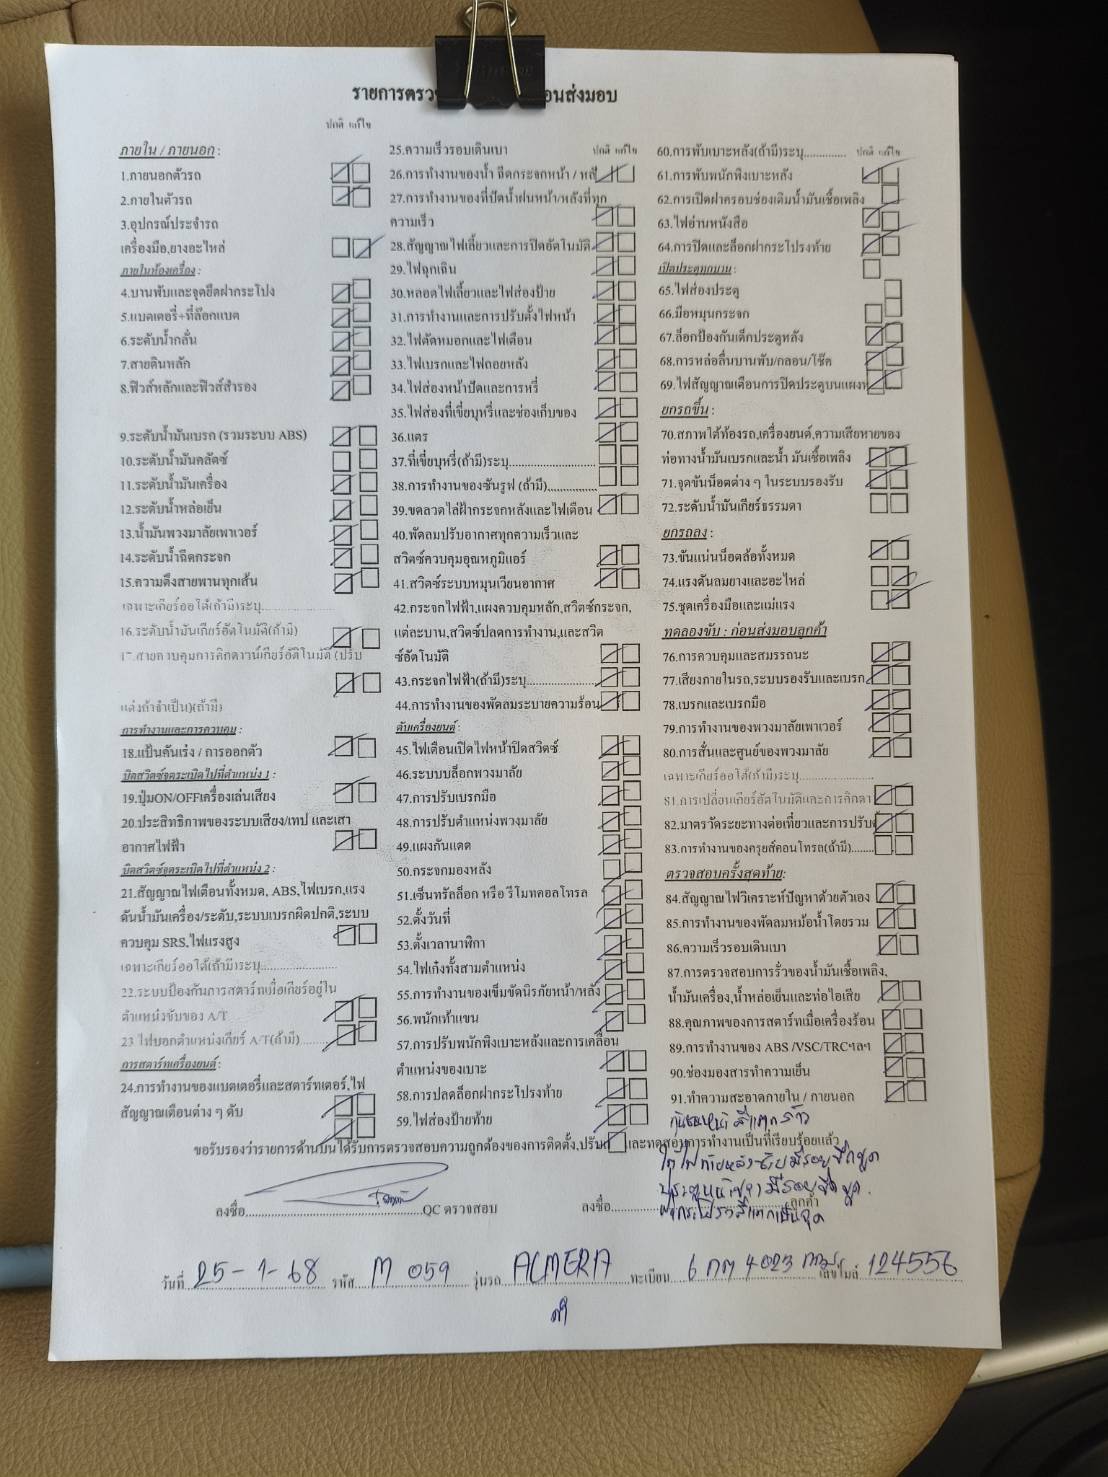 รายการตรว
อนส่งมอบ
ปกติ แก้ไข
ภายใน / ภายนอก :
1.ภายนอกตัวรถ
2.ภายในตัวรถ
3.อุปกรณ์ประจำรถ
เครื่องมือ,ยางอะไหล่
ภายในห้องเครื่อง :
4.บานพับและจุดยึดฝากระโปง
5.แบตเตอรี่+ที่ล๊อกแบต
6.ระดับน้ำกลั่น
7.สายดินหลัก
8.ฟิวส์หลักและฟิวส์สำรอง
9.ระดับน้ำมันเบรก (รวมระบบ ABS)
10.ระดับน้ำมันคลัตซ์
11.ระดับน้ำมันเครื่อง
12.ระดับน้ำหล่อเย็น
13.น้ำมันพวงมาลัยเพาเวอร์
14.ระดับน้ำฉีดกระจก
15.ความตึงสายพานทุกเส้น
เฉพาะเกียร์ออโต้(ถ้ามี)ระบุ..................
16.ระดับน้ำมันเกียร์อัตโนมัติ(ถ้ามี)
17.สายควบคุมการคิกดาวน์เกียร์อัติโนมัติ (ปรับ
แต่งถ้าจำเป็น)(ถ้ามี)
การทำงานและการควบคุม :
18.แป้นคันเร่ง / การออกตัว
บิดสวิตซ์จุดระเบิดไปที่ตำแหน่ง 1 :
19.ปุ่มON/OFFเครื่องเล่นเสียง
20.ประสิทธิภาพของระบบเสียง/เทป และเสา
อากาศไฟฟ้า
บิดสวิตซ์จุดระเบิดไปที่ตำแหน่ง 2 :
21.สัญญาณไฟเตือนทั้งหมด, ABS,ไฟเบรก,แรง
ดันน้ำมันเครื่อง/ระดับ,ระบบเบรกผิดปกติ,ระบบ
ควบคุม SRS,ไฟแรงสูง
เฉพาะเกียร์ออโต้(ถ้ามี)ระบุ..................
22.ระบบป้องกันการสตาร์ทเมื่อเกียร์อยู่ใน
ตำแหน่งขับของ A/T
23.ไฟบอกตำแหน่งเกียร์ A/T(ถ้ามี)......
การสตาร์ทเครื่องยนต์ :
24.การทำงานของแบตเตอรี่และสตาร์ทเตอร์,ไฟ
สัญญาณเตือนต่าง ๆ ดับ
25.ความเร็วรอบเดินเบา
ปกติ แก้ไข
26.การทำงานของน้ำ ฉีดกระจกหน้า / หลั
27.การทำงานของที่ปัดน้ำฝนหน้า/หลังที่ทุก
ความเร็ว
28.สัญญาณไฟเลี้ยวและการปิดอัตโนมัติ
29.ไฟฉุกเฉิน
30.หลอดไฟเลี้ยวและไฟส่องป้าย
31.การทำงานและการปรับตั้งไฟหน้า
32.ไฟตัดหมอกและไฟเตือน
33.ไฟเบรกและไฟถอยหลัง
34.ไฟส่องหน้าปัดและการหรี่
35.ไฟส่องที่เขี่ยบุหรี่และช่องเก็บของ
36.แตร
37.ที่เขี่ยบุหรี่(ถ้ามี)ระบุ............................
38.การทำงานของซันรูฟ (ถ้ามี)...............
39.ขดลวดไล่ฝ้ากระจกหลังและไฟเตือน
40.พัดลมปรับอากาศทุกความเร็วและ
สวิตซ์ควบคุมอุณหภูมิแอร์
41.สวิตช์ระบบหมุนเวียนอากาศ
42.กระจกไฟฟ้า,แผงควบคุมหลัก,สวิตซ์กระจก,
แต่ละบาน,สวิตซ์ปลดการทำงาน,และสวิต
ซ์อัตโนมัติ
43.กระจกไฟฟ้า(ถ้ามี)ระบุ.......................
44.การทำงานของพัดลมระบายความร้อน
ดับเครื่องยนต์ :
45.ไฟเตือนเปิดไฟหน้าปิดสวิตช์
46.ระบบบล็อกพวงมาลัย
47.การปรับเบรกมือ
48.การปรับตำแหน่งพวงมาลัย
49.แผงกันแดด
50.กระจกมองหลัง
51.เซ็นทรัลล็อก หรือ รีโมทคอลโทรล
52.ตั้งวันที่
53.ตั้งเวลานาฬิกา
54.ไฟเก๋งทั้งสามตำแหน่ง
55.การทำงานของเข็มขัดนิรภัยหน้า/หลัง
56.พนักเท้าแขน
57.การปรับพนักพิงเบาะหลังและการเคลื่อน
ตำแหน่งของเบาะ
58.การปลดล็อกฝากระโปรงท้าย
59.ไฟส่องป้ายท้าย
60.การพับเบาะหลัง(ถ้ามี)ระบุ.............
ปกติ แก้ไข
61.การพับพนักพิงเบาะหลัง
62.การเปิดฝาครอบช่องเติมน้ำมันเชื้อเพลิง
63.ไฟอ่านหนังสือ
64.การปิดและล็อกฝากระโปรงท้าย
เปิดประตูทุกบาน :
65.ไฟส่องประตู
66.มือหมุนกระจก
67.ล็อกป้องกันเด็กประตูหลัง
68.การหล่อลื่นบานพับ/กลอน/โช๊ค
69.ไฟสัญญาณเตือนการปิดประตูบนแผงห
ยกรถขึ้น :
70.สภาพใต้ท้องรถ,เครื่องยนต์,ความเสียหายของ
ท่อทางน้ำมันเบรกและน้ำ มันเชื้อเพลิง
71.จุดขันน็อตต่าง ๆ ในระบบรองรับ
72.ระดับน้ำมันเกียร์ธรรมดา
ยกรถลง :
73.ขันแน่นน็อตล้อทั้งหมด
74.แรงดันลมยางและอะไหล่
75.ชุดเครื่องมือและแม่แรง
ทดลองขับ : ก่อนส่งมอบลูกค้า
76.การควบคุมและสมรรถนะ
77.เสียงภายในรถ,ระบบรองรับและเบรก
78.เบรกและเบรกมือ
79.การทำงานของพวงมาลัยเพาเวอร์
80.การสั่นและศูนย์ของพวงมาลัย
เฉพาะเกียร์ออโต้(ถ้ามี)ระบุ..................
81.การเปลี่ยนเกียร์อัตโนมัติและการคิกดา
82.มาตรวัดระยะทางต่อเที่ยวและการปรับตั้
83.การทำงานของครุยส์คอนโทรล(ถ้ามี)......
ตรวจสอบครั้งสุดท้าย:
84.สัญญาณไฟวิเคราะห์ปัญหาด้วยตัวเอง
85.การทำงานของพัดลมหม้อน้ำโดยรวม
86.ความเร็วรอบเดินเบา
87.การตรวจสอบการรั่วของน้ำมันเชื้อเพลิง,
น้ำมันเครื่อง,น้ำหล่อเย็นและท่อไอเสีย
88.คุณภาพของการสตาร์ทเมื่อเครื่องร้อน
89.การทำงานของ ABS /VSC/TRCฯลฯ
90.ช่องมองสารทำความเย็น
91.ทำความสะอาดภายใน / ภายนอก
กันชนหน้า สีแตกร้าว
ขอรับรองว่ารายการด้านบนได้รับการตรวจสอบความถูกต้องของการติดตั้ง,ปรับ และทดสอบการทำงานเป็นที่เรียบร้อยแล้ว
ใต้ไฟท้ายหลังซ้าย มีรอยขีดขูด
ประตูหน้าขวามีรอยขีดขูด
ฝากระโปรงสีแตกเป็นจุด
ลงชื่อ........................................QC ตรวจสอบ
ลงชื่อ........................................ลูกค้า
วันที่ 25-1-68 รหัส M 059 รุ่นรถ ALMERA ทะเบียน 6 กต 4023 กทม เลขไมล์ 124556
ดำ